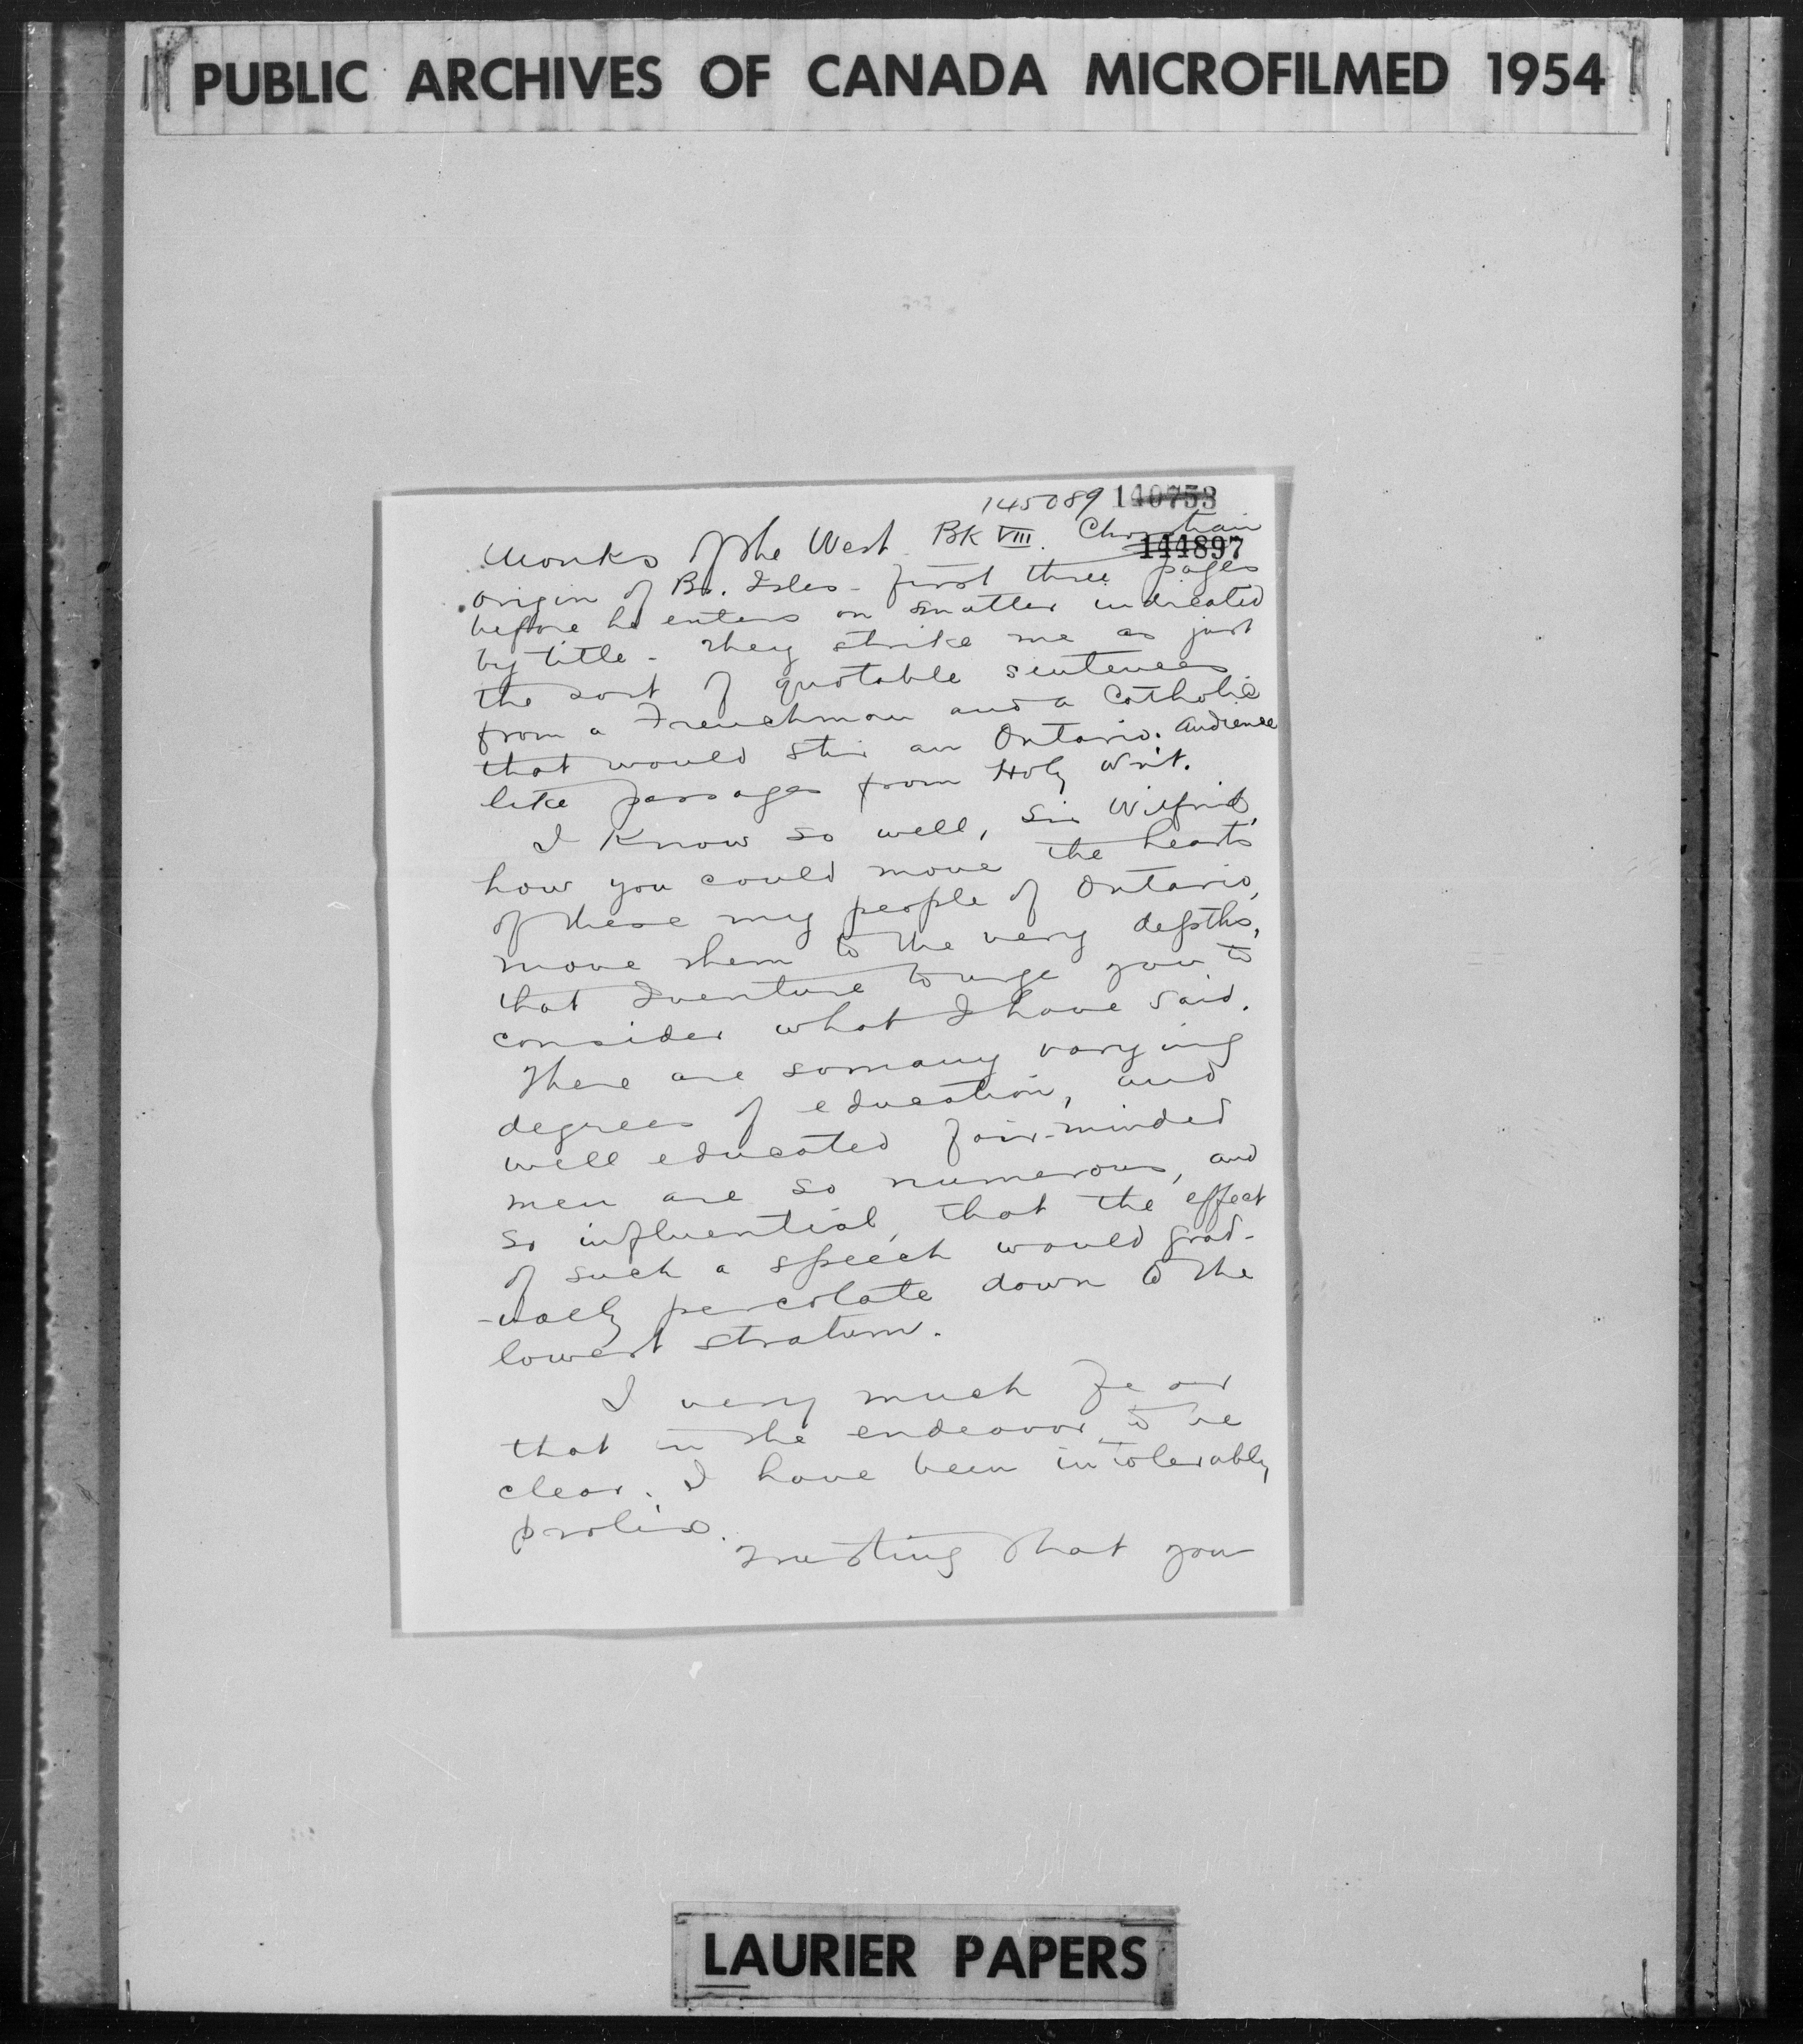 PUBLIC ARCHIVES OF CANADA MICROFILMED 1954
145089 140753
Monks of the West. BK VIII. Christain
144897
origin of Br. Isles - first three pages
before he enters on matter indicated
by title - They strike me as just
the sort of quotable sentences
from a Frenchman and a Catholic
that would stir an Ontario. audience
like passages from Holy Writ.
I know so well, Sir Wilfrid,
how you could move the hearts
of these my people of Ontario,
move them to the very depths,
that I venture to urge you to
consider what I have said.
There are so many varying
degrees of education, and
well educated fair-minded
men are so numerous, and
so influential, that the effect
of such a speech would grad-
-ually percolate down to the
lowest stratum.
I very much fear
that in the endeavor to be
clear, I have been intolerably
prolix.
Trusting that you
LAURIER PAPERS